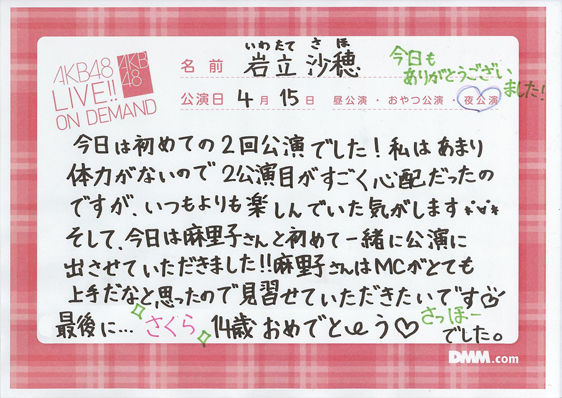 AKB48
LIVE!!
ON DEMAND
AKB
48
いわたて さほ
名前 岩立 沙穂
今日も
ありがとうござい
ました!
公演日 4月 15日 昼公演・おやつ公演・夜公演
今日は初めての2回公演でした!私はあまり
体力がないので2公演目がすごく心配だったの
ですが、いつもよりも楽しんでいた気がします
そして、今日は麻里子さんと初めて一緒に公演に
出させていただきました!!麻里子さんはMCがとても
上手だなと思ったので見習せていただきたいです
最後に… さくら 14歳おめでとう♡ さっほー
でした。
DMM.com